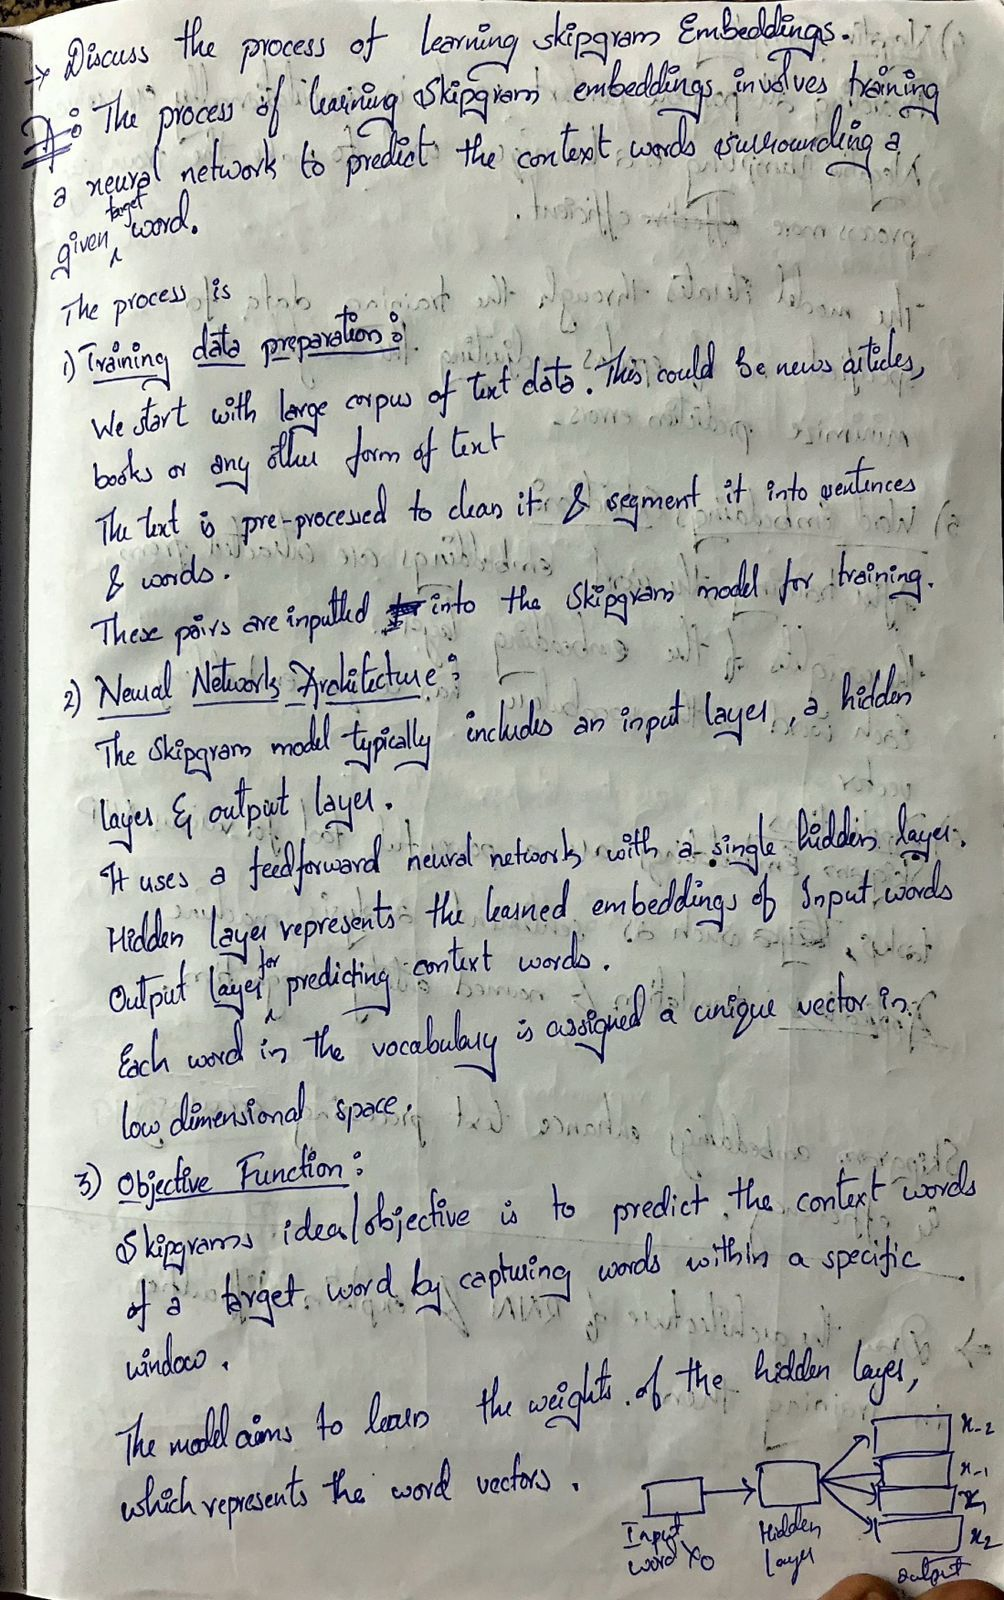 → Discuss the process of learning skipgram Embeddings.
A: The process of learning Skipgram embeddings involves training
a neural network to predict the context words surrounding a
given target word.
The process is
1) Training data preparation:
We start with large corpus of text data. This could be news articles,
books or any other form of text
The text is pre-processed to clean it & segment it into sentences
& words.
These pairs are inputted into the Skipgram model for training.
2) Neural Network Architecture:
The Skipgram model typically includes an input layer, a hidden
layer & output layer.
It uses a feedforward neural network with a single hidden layer.
Hidden layer represents the learned embeddings of Input words
Output layer for predicting context words.
Each word in the vocabulary is assigned a unique vector in
low dimensional space.
3) Objective Function:
Skipgrams idea/objective is to predict the context words
of a target word by capturing words within a specific
window.
The model aims to learn the weights of the hidden layer,
which represents the word vectors.
x-2
x-1
x1
x2
Input
word x0
Hidden
layer
output